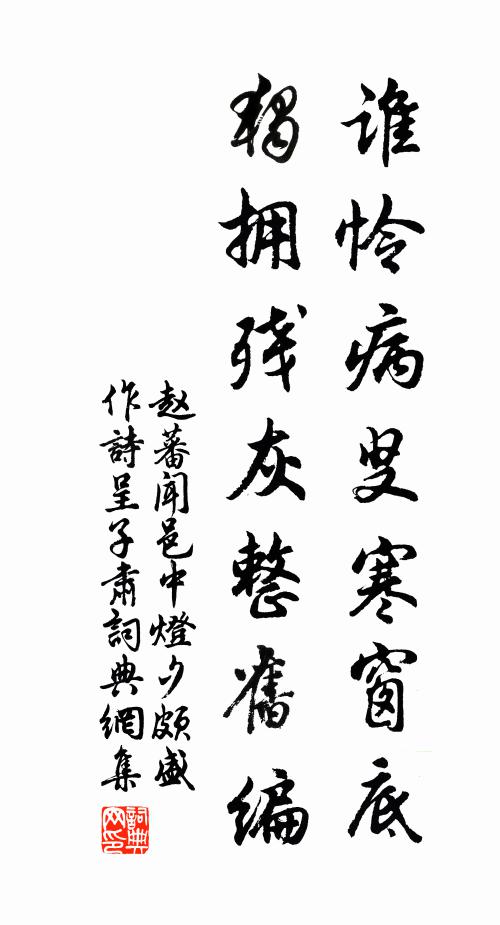 谁怜病叟寒窗底
独拥残灰整旧编
赵蕃闻邑中燈夕頗盛
作詩呈子肅詞典網集
詞典
网印